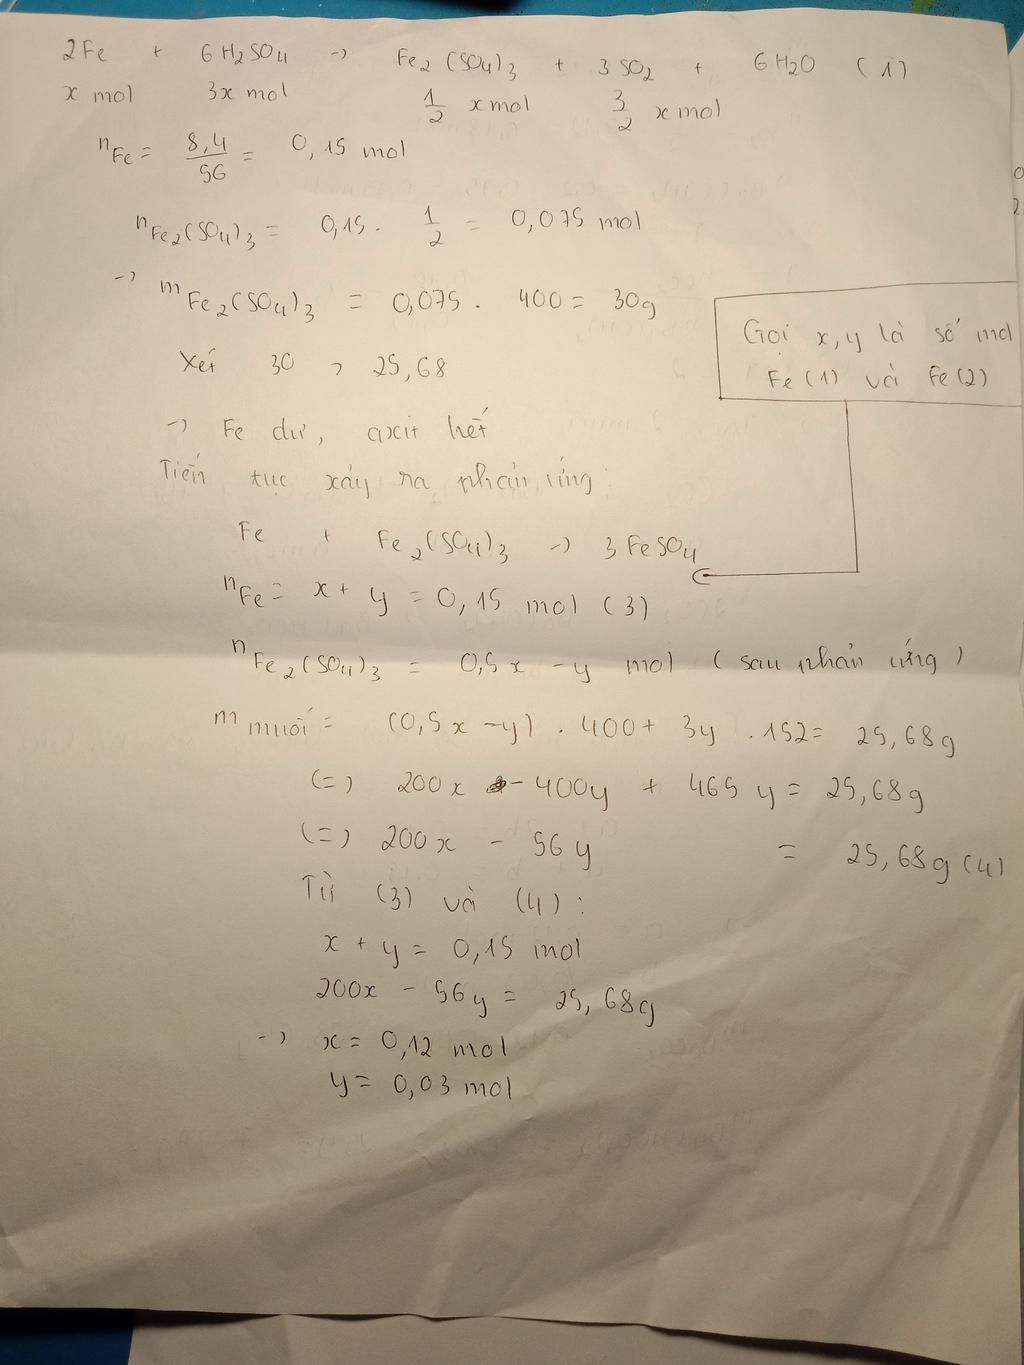 2Fe + 6H2SO4 -> Fe2(SO4)3 + 3SO2 + 6H2O (1)
x mol 3x mol 1/2 x mol 3/2 x mol
nFe = 8,4/56 = 0,15 mol
nFe2(SO4)3 = 0,15 . 1/2 = 0,075 mol
-> mFe2(SO4)3 = 0,075 . 400 = 30g
Gọi x, y là số mol
Fe(1) và Fe(2)
Xét 30 > 25,68
-> Fe dư, axit hết
Tiếp tục xảy ra phản ứng:
Fe + Fe2(SO4)3 -> 3FeSO4
nFe = x + y = 0,15 mol (3)
nFe2(SO4)3 = 0,5x - y mol (sau phản ứng)
m muối = (0,5x - y) . 400 + 3y . 152 = 25,68g
(=) 200x - 400y + 465y = 25,68g
(=) 200x - 56y = 25,68g (4)
Từ (3) và (4):
x + y = 0,15 mol
200x - 56y = 25,68g
-> x = 0,12 mol
y = 0,03 mol